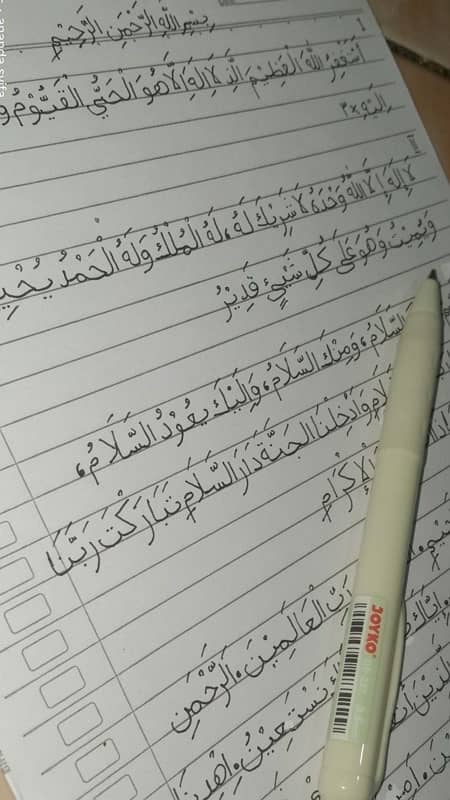 بِسْمِ اللهِ الرَّحْمَنِ الرَّحِيْمِ
أَسْتَغْفِرُ اللهَ الْعَظِيْمَ الَّذِ لَا إِلَهَ إِلَّا هُوَ الْحَيُّ الْقَيُّوْمُ وَ
إِلَيْهِ ×٣
لَا إِلَهَ إِلَّا اللهُ وَحْدَهُ لَا شَرِيْكَ لَهُ، لَهُ الْمُلْكُ وَلَهُ الْحَمْدُ يُحْيِ
وَيُمِيْتُ وَهُوَ عَلَى كُلِّ شَيْئٍ قَدِيْرُ
السَّلَامُ، وَمِنْكَ السَّلَامُ، وَإِلَيْكَ يَعُوْدُ السَّلَامُ،
وَادْخِلْنَا الْجَنَّةَ دَارَ السَّلَامِ تَبَارَكْتَ رَبَّنَا
الْإِكْرَامِ
رَبِّ الْعَالَمِيْنَ. الرَّحْمَنِ
نَسْتَعِيْنُ. اِهْدِنَا
JOYKO